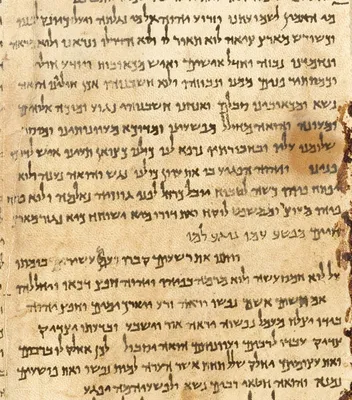 מי האמין לשמועתנו וזרוע יהוה אל מי נגלתה ויעל כיונק לפניו
וכשורש מארץ ציה לוא תאר לו ולוא הדר לו ונראנו ולוא מראה
ונחמדנו נבזה וחדל אישים ואיש מכאובות ויודע חולי
וכמסתיר פנים ממנו ונבוזהו ולוא חשבנוהו אכן חוליינו הואה
נשא ומכאובינו סבלם ואנחנו חשבנוהו נגוע ומוכה אלוהים
ומעונה והואה מחולל מפשעינו ומדוכא מעוונותינו ומוסר
שלומנו עליו ובחבורתיו נרפא לנו כולנו כצואן תעינו איש לדרכו
פנינו ויהוה הפגיע בו את עוון כולנו נגש והואה נענה ולוא
פתח פיהו כשה לטבוח יובל כרחל לפני גוזזיה נאלמה ולוא פתח
פיהו מעוצר וממשפט לוקח ואת דורו מיא ישוחח כיא נגזר מארץ
חיים מפשע עמו נוגע למו
ויתנו את רשעים קברו ועם עשיר בומתו
על לוא חמס עשה ולוא מרמה בפיהו ויהוה חפץ דכאו ויחללהו
אם תשים אשם נפשו יראה זרע ויארך ימים וחפץ יהוה
בידו יצלח מעמל נפשוה יראה אור וישבע ובדעתו יצדיק
צדיק עבדו לרבים ועוונותם הואה יסבול לכן אחלק לו ברבים
ואת עצומים יחלק שלל תחת אשר הערה למות נפשו ואת פושעים
נמנא והואה חטאי רבים נשא ולפשעיהמה יפגע